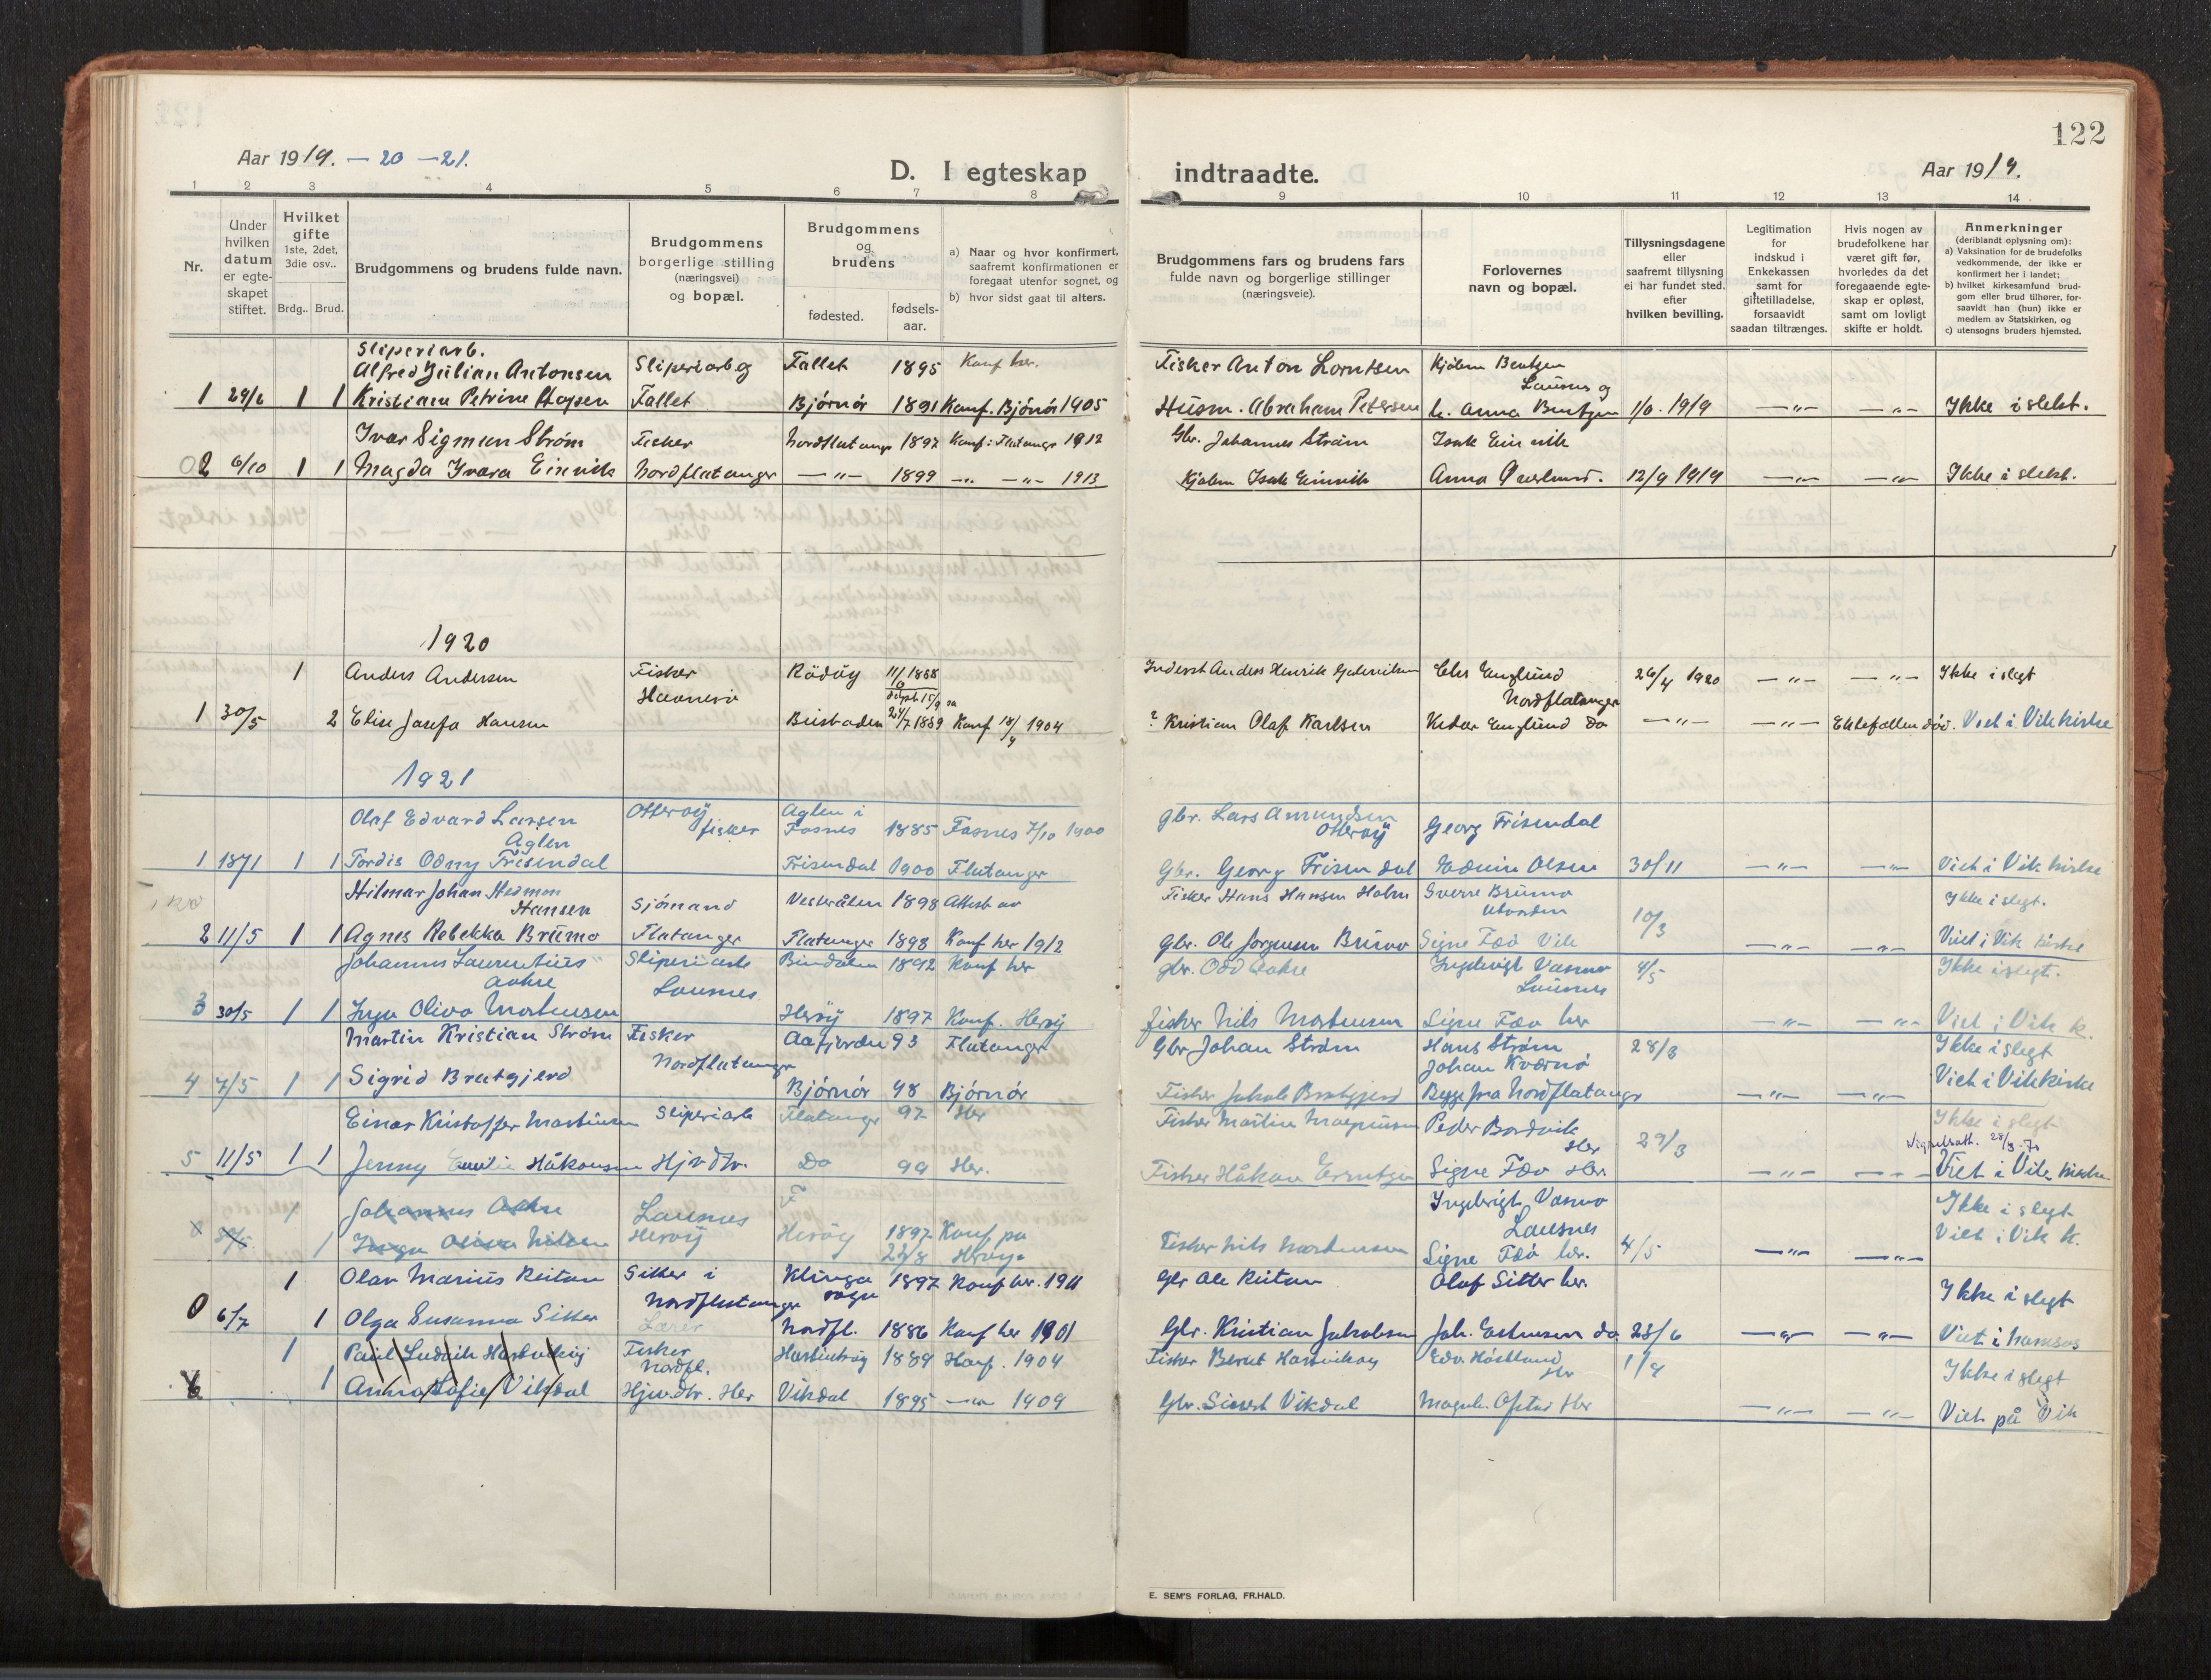 122
Aar 1919. — 20 — 21.
D. I egteskap indtraadte.
Aar 1919.
1 2 3 4 5 6 7 8 9 10 11 12 13 14
Nr.
Under hvilken datum er egteskapet stiftet.
Hvilket gifte 1ste, 2det, 3die osv..
Brdg.. Brud.
Brudgommens og brudens fulde navn.
Brudgommens borgerlige stilling (næringsvei) og bopæl.
Brudgommens og brudens
fødested.
fødsels-aar.
a) Naar og hvor konfirmert, saafremt konfirmationen er foregaat utenfor sognet, og
b) hvor sidst gaat til alters.
Brudgommens fars og brudens fars fulde navn og borgerlige stillinger (næringsveie).
Forlovernes navn og bopæl.
Tillysningsdagene eller saafremt tillysning ei har fundet sted. efter hvilken bevilling.
Legitimation for indskud i Enkekassen samt for giftetilladelse, forsaavidt saadan tiltrænges.
Hvis nogen av brudefolkene har været gift før, hvorledes da det foregaaende egteskap er opløst, samt om lovligt skifte er holdt.
Anmerkninger (deriblandt oplysning om):
a) Vaksination for de brudefolks vedkommende, der ikke er konfirmert her i landet;
b) hvilket kirkesamfund brudgom eller brud tilhører, forsaavidt han (hun) ikke er medlem av Statskirken, og
c) utensogns bruders hjemsted.
Sliperiarb.
Alfred Julian Antonsen Sliperiarb og Fallet 1895 Konf her. Fisker Anton Lorntsen Kjølem Bentzen Lausnes og
1 29/6 1 1 Kristiane Petrine Fallet Bjørnør 1891 Konf. Bjørnør 1905 Husm. Abraham Petersen Anna Bentzen 1919 —"— —"— Ikke i slekt.
Ivar Sigmun Strøm Fisker Nordflatanger 1897 Konf i Flatanger 1912 Gbr. Johannes Strøm Isak Einvik
2 6/10 1 1 Magda Ivara Einvik Nordflatanger —"— 1899 —"— —"— 1913 Kjølem Isak Einvik Anna Øverlund. 12/9 1919 —"— —"— Ikke i slekt.
1920
1 Anders Andersen Fisker Rödöy 11/6 1888 Inderst Anders Henrik Elis Englund Nordflatanger 26/4 1920 —"— —"— Ikke i slegt
1 30/5 2 Elise Josefa Hansen 24/7 1889 Konf 18/4 1904 ? Kristian Olaf Karlsen Englund Do —"— —"— Ektefællen död. Viet i Vik kirke
1921
Olaf Edvard Larsen Aglen Otterøy fisker Aglen i Fosnes 1885 Fosnes 7/10 1900 Gbr. Lars Amundsen Otterøy Georg Frisendal
1 1 1 Tordis Odny Frisendal Frisendal 1900 Flatanger Gbr. Georg Frisendal Edvin Olsen 30/11 —"— —"— Viet i Vik kirke
Hilmar Johan Hermon Hansen Sjømand Vesterålen 1898 Attest av Fisker Hans Hansen Holm Sverre Brümo Utvorden 10/3 Ikke i slegt.
2 11/5 1 1 Agnes Rebekka Brümo Flatanger Flatanger 1898 Konf her 1912 Gbr. Ole Jørgensen Brümo Signe Fæø Vik —"— —"— Viet i Vik kirke
Johannes Laurentius Aakre Sliperiarb Lausnes Bindalen 1892 Konf her gbr. Odd Aakre Ingebrigt Vasmo Lausnes 4/5 Ikke i slegt.
3 30/5 1 1 Inga Oliva Mortensen Herøy 1897 Konf. Herøy fisker Nils Mortensen Signe Fæø her —"— —"— Viet i Vik k.
Martin Kristian Strøm Fisker Nordflatanger Aafjorden 93 Flatanger Gbr Johan Strøm Hans Strøm 28/3 Ikke i slegt
4 7/5 1 1 Sigrid Bratgjerd Bjørnør 98 Bjørnør Fisker Jakob Bratgjerd Johan Kværnø Begge fra Nordflatanger —"— —"— Viet i Vik kirke
Einar Kristoffer Martinsen Sliperiarb Flatanger 97 Her Fisker Martin Magnussen Peder Bordvik Her 29/3 Ikke i slegt
5 11/5 1 1 Jenny Emilie Håkonsen Hjv dtr. Do 99 Her. Fisker Håkon Signe Fæø Her —"— —"— Viet i Vik kirke
1 Johannes Aakre Lausnes F Ingebrigt Vasmo Lausnes Ikke i slegt
1 Inga Oliva Nilsen Herøy Herøy 1897 22/8 Konf på Herøy. Fisker Nils Mortensen Signe Fæø her. 4/5 —"— —"— Viet i Vik k.
1 Olav Marius Reitan Sitter i Nordflatanger Klinga sogn 1897 Konf her. 1911 Gbr Ole Reitan Olaf Sitter her. Ikke i slegt
0 6/7 1 Olga Susanna Sitter Lærer Nordfl. 1886 Konf her 1901 Gbr. Kristian Jakobsen Joh. do 28/6 —"— —"— Viet i Namsos
1 Paul Ludvik Hasvikøy Fisker Nordfl. 1889 Konf. 1904 Fisker Bernt Hasvikøy Edv. Her 1/9 Ikke i slegt
6 1 Anna Sofie Vikdal Hjv. dtr. Her Vikdal 1895 —"— 1909 Gbr. Sivert Vikdal Her —"— —"— Viet på Vik
E. SEM'S FORLAG, FR.HALD.